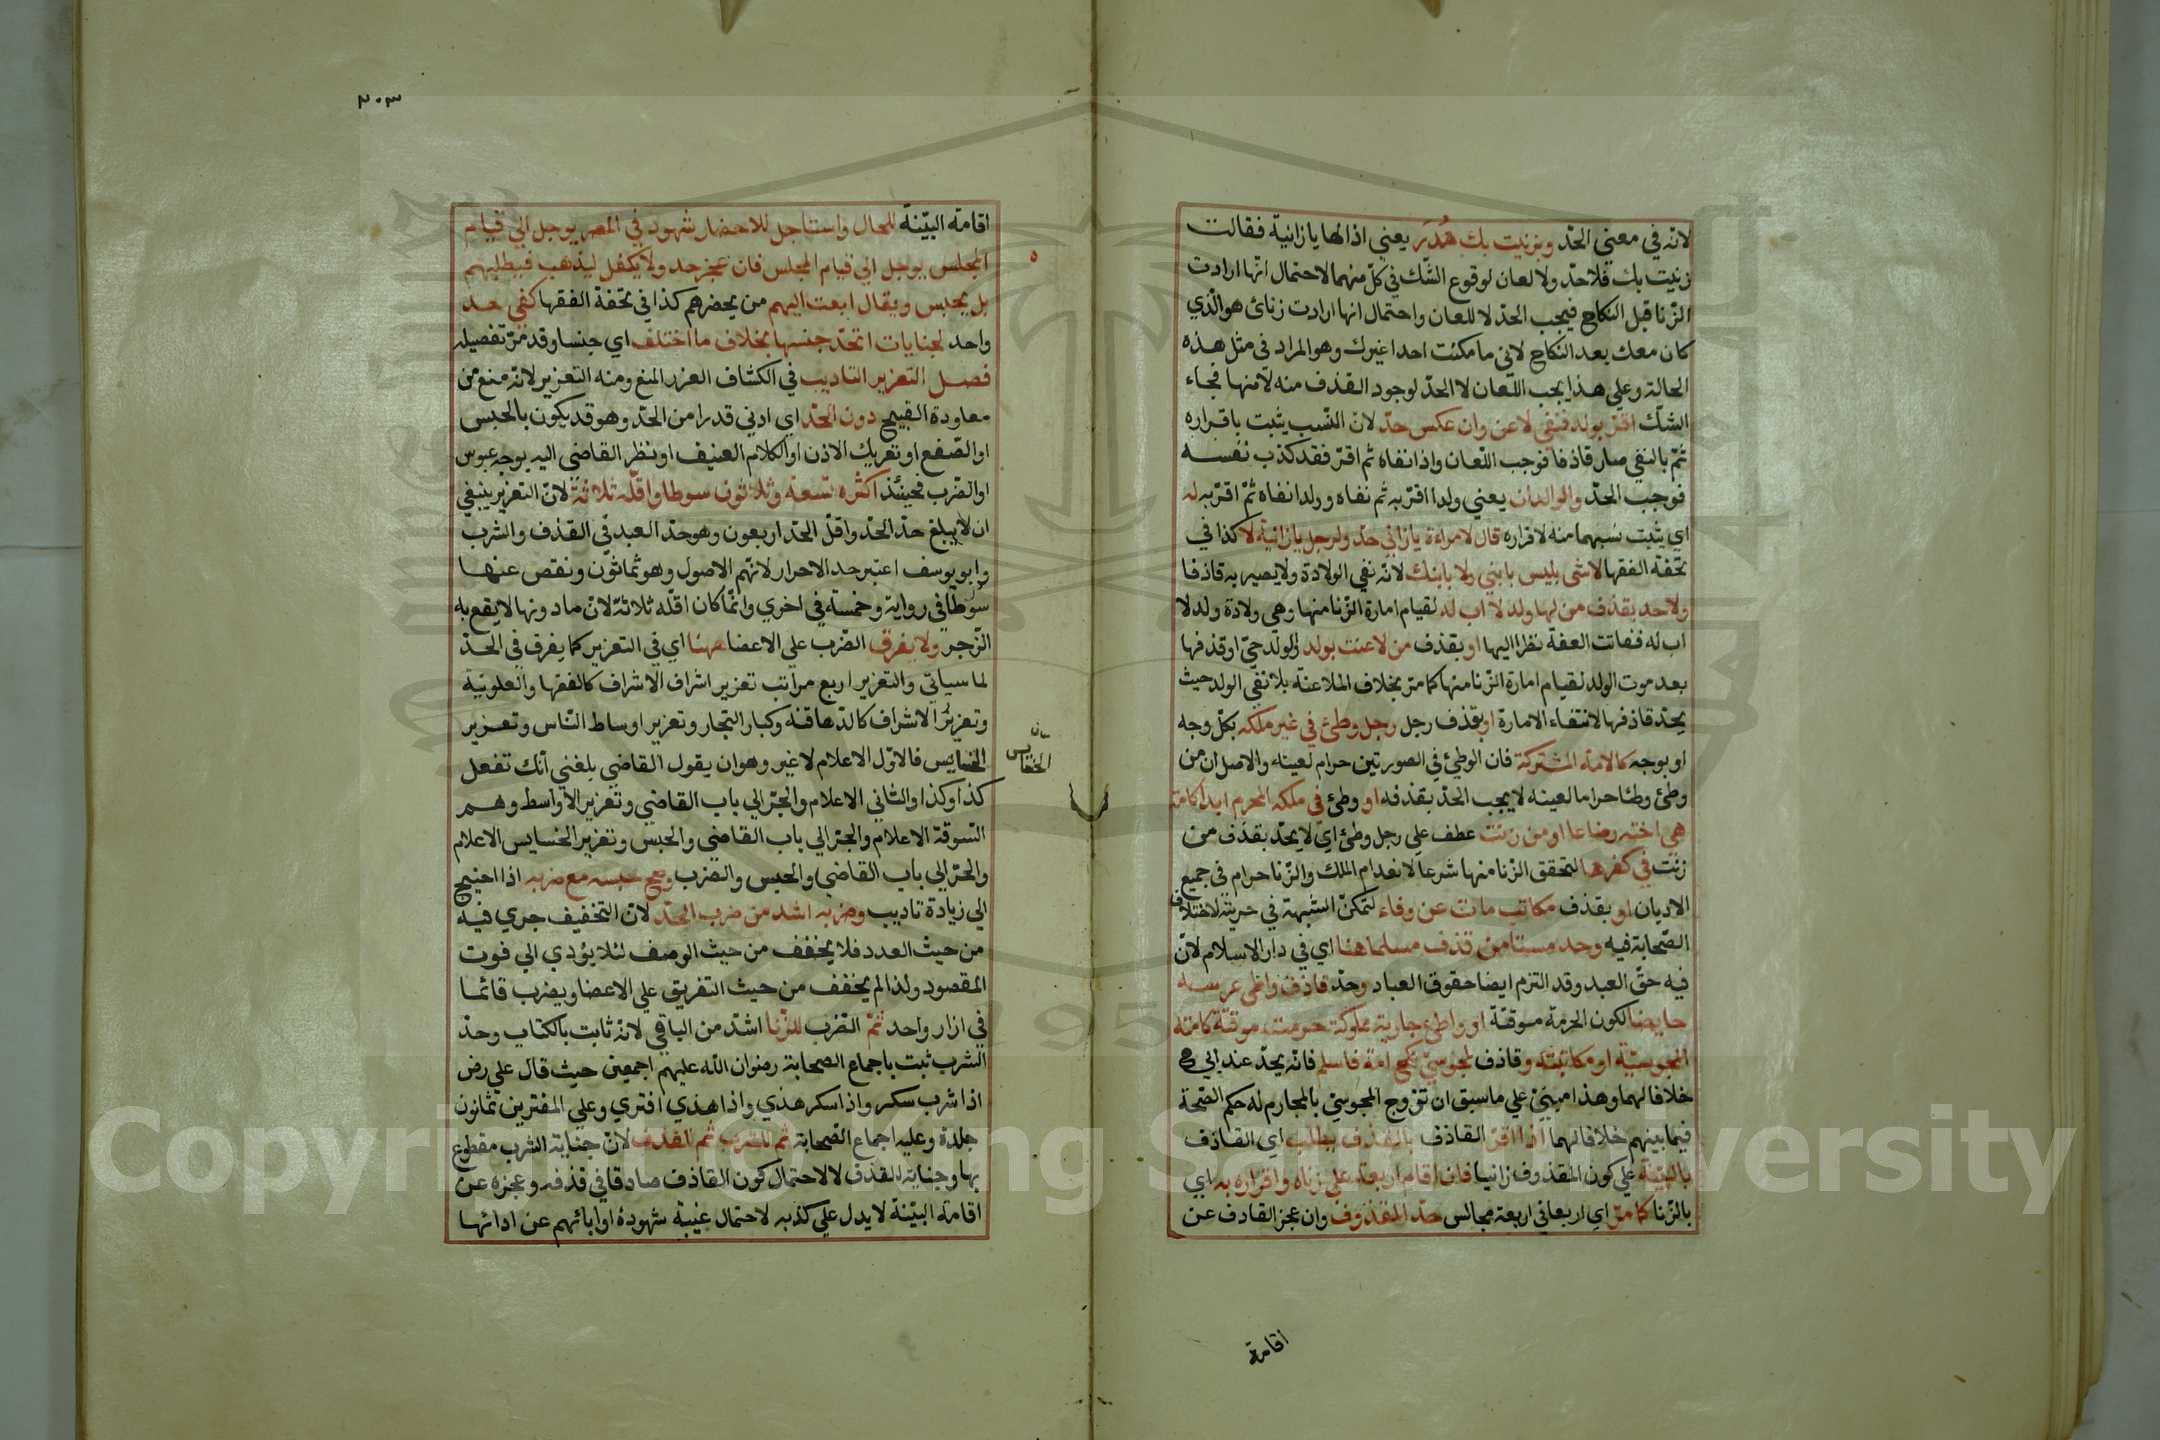 لانه في معني الحدّ وبزنيت بك هُدَر يعني اذا لها يا زانية فقالت
زنيت بك فلا حدّ ولا لعان لوقوع الشّك في كلّ منهما لاحتمال انّها ارادت
الزّنا قبل النكاح فيجب الحدّ لا للعان واحتمال انها ارادت زنائ هو الّذي
كان معك بعد النكاح لاني ما مكنت احدا غيرك وهو المراد في مثل هذه
الحالة وعلي هذا يجب اللّعان لا الحدّ لوجود القذف منه لا منها فجاء
الشّك اقرّ بولد فنفي لاعن وان عكس حدّ لانّ النّسب يثبت باقراره
ثمّ بالنفي صار قاذفا فوجب اللّعان واذا نفاه ثم اقرّ فقد كذب نفسه
فوجب الحدّ والولدان يعني ولدا اقرّ به ثم نفاه وولدا نفاه ثمّ اقرّ به له
اي يثبت نسبهما منه لاقراره قال لامراءة يا زاني حدّ ولرجل يا زانية لا كذا في
تحفة الفقها لا شي بليس بابني ولا بابنك لانّه نفي الولادة ولا يصير به قاذفا
ولا حد بقذف من لها ولد لا اب له لقيام امارة الزّنا منها وهي ولادة ولد لا
اب له ففاتت العفة نظرا اليها او بقذف من لاعنت بولد والولد حيّ او قذفها
بعد موت الولد لقيام امارة الزّنا منها كما مرّ بخلاف الملاعنة بلا نفي الولد حيث
يحدّ قاذفها لانتفاء الامارة او بقذف رجل رجل وطئ في غير ملكه بكلّ وجه
او بوجه كالامة المشتركة فان الوطئ في الصورتين حرام لعينه والاصل ان من
وطئ وطئا حراما لعينه لا يجب الحدّ بقذفه او وطئ في ملكه المحرم ابدا كامة
هي اخته رضاعا او من زنت عطف علي رجل وطئ اي لا يحدّ بقذف من
زنت في كفرها لتحقق الزّنا منها شرعا لانعدام الملك والزّنا حرام في جميع
الاديان او بقذف مكاتب مات عن وفاء لتمكنّ الشبهة في حريته لاختلاف
الصّحابة فيه وحد مستامن قذف مسلما هنا اي في دار الاسلام لانّ
فيه حقّ العبد وقد التزم ايضا حقوق العباد وحدّ قاذف واطي عرسه
حايضا لكون الحرمة موقتة او واطئ جارية مملوكة حرمت موقتة كامته
المجوسيّة او مكاتبته وقاذف لمجوسيّ نكح امه فاسلم فانّه يحدّ عند ابي ح
خلافا لهما وهذا مبنيّ علي ما سبق ان تزوج المجوسيّ بالمحارم له حكم الصّحة
فيما بينهم خلافا لهما اذا اقرّ القاذف بالقذف يطلب اي القاذف
بالبيّنة علي كون المقذوف زانيا فان اقام اربعة علي زناه واقراره به اي
بالزّنا كما مرّ اي اربعا في اربعة مجالس حدّ المقذوف وان عجز القاذف عن
اقامة
٢٠٣
اقامة البيّنة للحال واستاجل للاحضار شهود في المصر يوجل الي قيام
المجلس يوجل الي قيام المجلس فان عجز حد ولا يكفل ليذهب فيطلبهم
بل يحبس ويقال ابعث اليهم من يحضرهم كذا في تحفة الفقها كفي حد
واحد لجنايات اتحدّ جنسها بخلاف ما اختلف اي جنسا وقد مرّ تفصيله
فصل التعزير التاديب في الكشاف العزر المنع ومنه التعزير لانّه منع من
معاودة القبيح دون الحدّ اي ادني قدرا من الحدّ وهو قد يكون بالحبس
او الصّفع او تعريك الاذن او الكلام العنيف او نظر القاضي اليه بوجه عبوس
او الضّرب فحينئذ اكثره تسعة وثلاثون سوطا واقلّه ثلاثة لانّ التعزير ينبغي
ان لا يبلغ حدّ الحدّ واقلّ الحدّ اربعون وهو حدّ العبد في القذف والشرب
وابو يوسف اعتبر حد الاحرار لانّهم الاصول وهو ثمانون ونقص عنها
سوطا في رواية وخمسة في اخري وانّما كان اقلّه ثلاثة لانّ ما دونها لا يقع به
الزّجر ولا يفرق الضّرب علي الاعضا هنا اي في التعزير كما يفرق في الحدّ
لما سياتي والتعزير اربع مراتب تعزير اشراف الاشراف كالفقها والعلويّة
وتعزير الاشراف كالدّهاقنة وكبار التجار وتعزير اوساط النّاس وتعزير
الخسايس فالاوّل الاعلام لا غير وهو ان يقول القاضي بلغني انّك تفعل
كذا وكذا والثاني الاعلام والجرّ الي باب القاضي وتعزير الاواسط وهم
السّوقة الاعلام والجرّ الي باب القاضي والحبس وتعزير الخسايس الاعلام
والجرّ الي باب القاضي والحبس والضرب وصح حبسه مع ضربه اذا احتيج
الي زيادة تاديب وضربه اشد من ضرب الحدّ لانّ التخفيف جري فيه
من حيث العدد فلا يخفف من حيث الوصف لئلا يؤدي الي فوت
المقصود ولذا لم يخفف من حيث التفريق علي الاعضا ويضرب قائما
في ازار واحد ثمّ الضّرب للزّنا اشدّ من الباقي لانّه ثابت بالكتاب وحدّ
الشرب ثبت باجماع الصحابة رضوان اللّه عليهم اجمعين حيث قال علي رض
اذا شرب سكر واذا سكر هذي واذا هذي افتري وعلي المفترين ثمانون
جلدة وعليه اجماع الصّحابة ثم للشرب ثم للقذف لانّ جناية الشرب مقطوع
بها وجناية القذف لا لاحتمال كون القاذف صادقا في قذفه وعجزه عن
اقامة البيّنة لا يدل علي كذبه لاحتمال غيبة شهوده او ابائهم عن ادائها
Copyright © King Saud University
1957